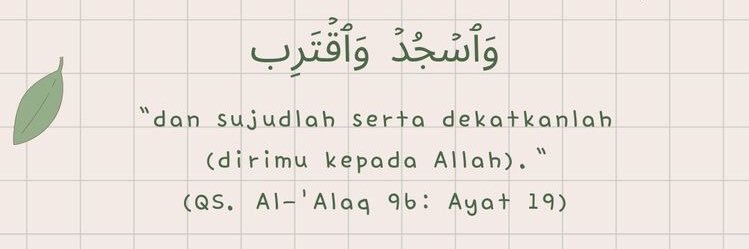 وَٱسْجُدْ وَٱقْتَرِب
"dan sujudlah serta dekatkanlah
(dirimu kepada Allah)."
(QS. Al-'Alaq 96: Ayat 19)